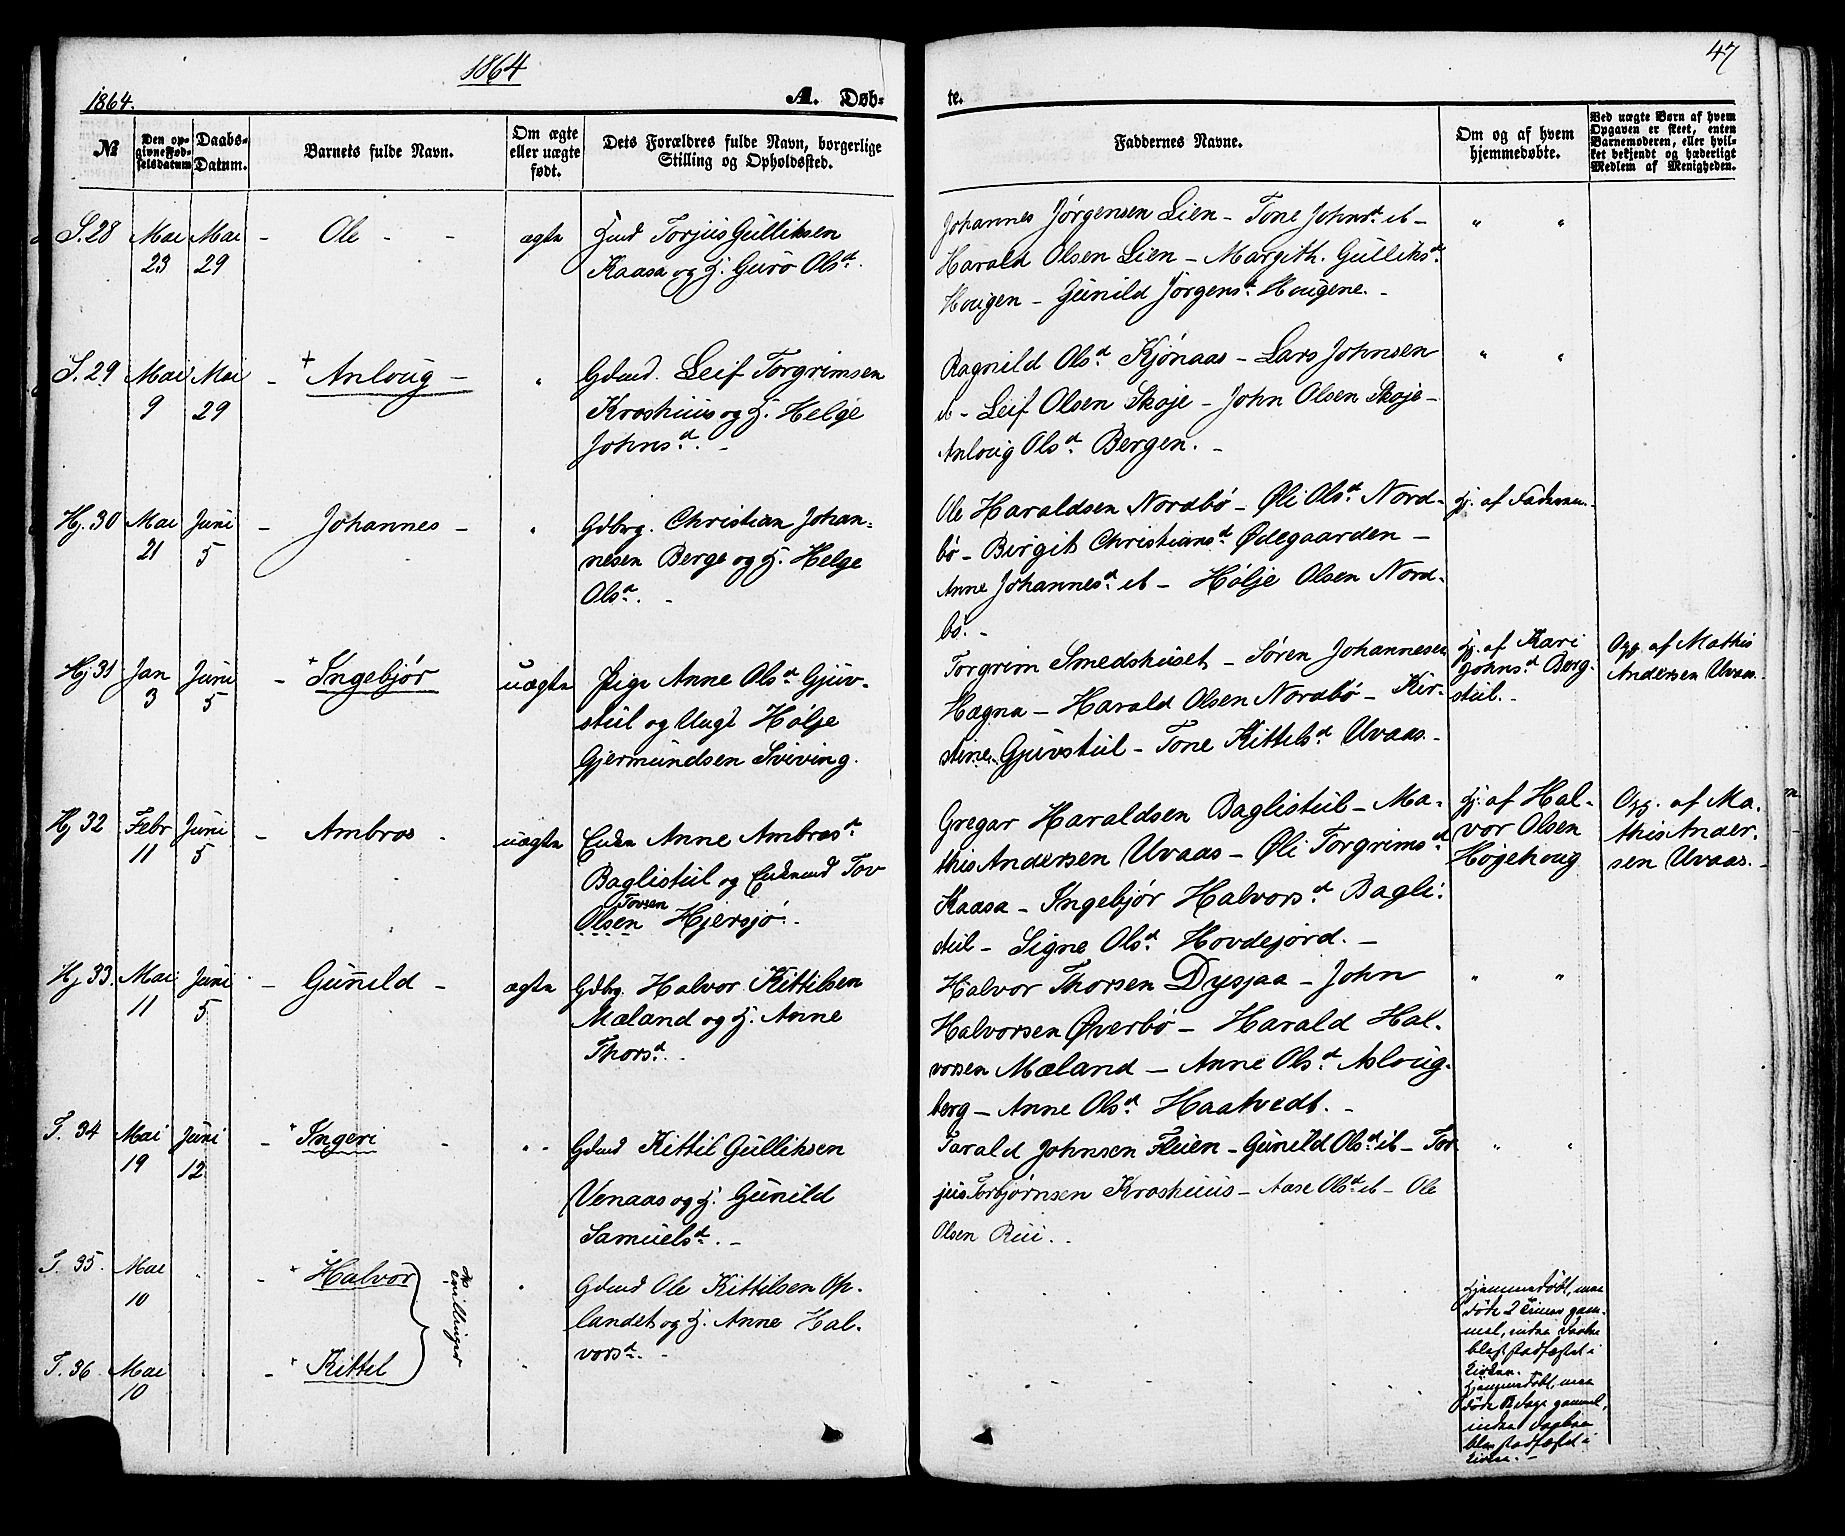 1864
47
1864.
A. Døb-
te.
№
Den op-
givne Fød-
selsdatum
Daabs-
Datum.
Barnets fulde Navn.
Om ægte
eller uægte
født.
Dets Forældres fulde Navn, borgerlige
Stilling og Opholdssted.
Faddernes Navne.
Om og af hvem
hjemmedøbte.
Ved uægte Børn af hvem
Opgaven er skeet, enten
Barnemoderen, eller hvil-
ket bekjendt og hæderligt
Medlem af Menigheden.
S. 28
Mai
23
Mai
29
- Ole - -
ægte
Torjus Gulliksen
Kaasa og H. Guro Olsd.
Johannes Jørgensen Lien - Tone Johnsd ib -
Harald Olsen Lien - Margith. Gulliksd
Hougen - Gunild Jørgensd. Hougene. -
" "
S. 29
Mai
9
Mai
29
- + Anloug -
"
Gdmd. Leif Torgrimsen
Kroshuus og H. Helge
Johnsd. -
Ragnild Olsd Kjønaas - Lars Johnsen
ib - Leif Olsen Skoje - John Olsen Skoje -
Anloug Olsd. Bergen. -
" "
Hj. 30
Mai
21
Juni
5
- Johannes -
"
Gdbrg. Christian Johan-
nesen Berge og H. Helge
Olsd. -
Ole Haraldsen Nordbø - Øli Olsd. Nord-
bø - Birgit Christiansd Ødegaarden -
Anne Johannesd. ib - Hølje Olsen Nord-
bø. -
Hj. af Faderen.
Hj 31
Jan
3
Juni
5
- + Ingebjør
uægte
Pige Anne Olsd. Gjuv-
stul og Ungk Hølje
Gjermundsen Sviving.
Torgrim Smedshuset - Søren Johannesen
Hægna - Harald Olsen Nordbø - Kir-
stine Gjuvstul - Tone Kittelsd. Uvaas. -
Hj. af Kari
Johnsd. Berg-
stul. -
Opg. af Mathis
Andersen Uvaas.
Hj 32
Febr
11
Juni
5
- Ambros -
uægte
Enken Anne Ambrosd.
Baglistul og Enkemd Tov
Tovsen
Olsen Hjersjø. -
Gregar Haraldsen Baglistul - Ma-
this Andersen Uvaas - Øli Torgrimsd
Kaasa - Ingebjør Halvorsd. Bagli-
stul - Signe Olsd. Hovdejord. -
Hj. af Hal-
vor Olsen
Høgehoug
Opg. af Ma-
this Ander-
sen Uvaas. -
Hj 33.
Mai
11
Juni
5
- Gunild -
ægte
Gdbrg. Halvor Kittilsen
Mæland og H. Anne
Thorsd. -
Halvor Thorsen Dysjaa - John
Halvorsen Øverbø - Harald Hal-
vorsen Mæland - Anne Olsd. Asloug-
berg - Anne Olsd. Haatvedt. -
" "
S. 34
Mai
19
Juni
12
- + Ingeri -
" -
Gdmd Kittil Gulliksen
Venaas og H. Gunild
Samuelsd. -
Tarald Johnsen Fleien - Gunild Olsd ib - Tor-
jus Torbjørnsen Kroshuus - Aase Olsd. ib - Ole
Olsen Rui. -
" "
S. 35.
Mai
10
"
- + Halvor
Tvillinger
"
Gdmd Ole Kittilsen Op-
landet og H. Anne Hal-
vorsd. -
Hjemmedøbt, men
døde 2 Timer gam-
mel, inden Daaben
blev stadfæstet i
Kirken.
S. 36
Mai
10
"
- + Kittel
"
Hjemmedøbt, men
døde Dage gammel,
inden Daaben
blev stadfæstet i
Kirken. -